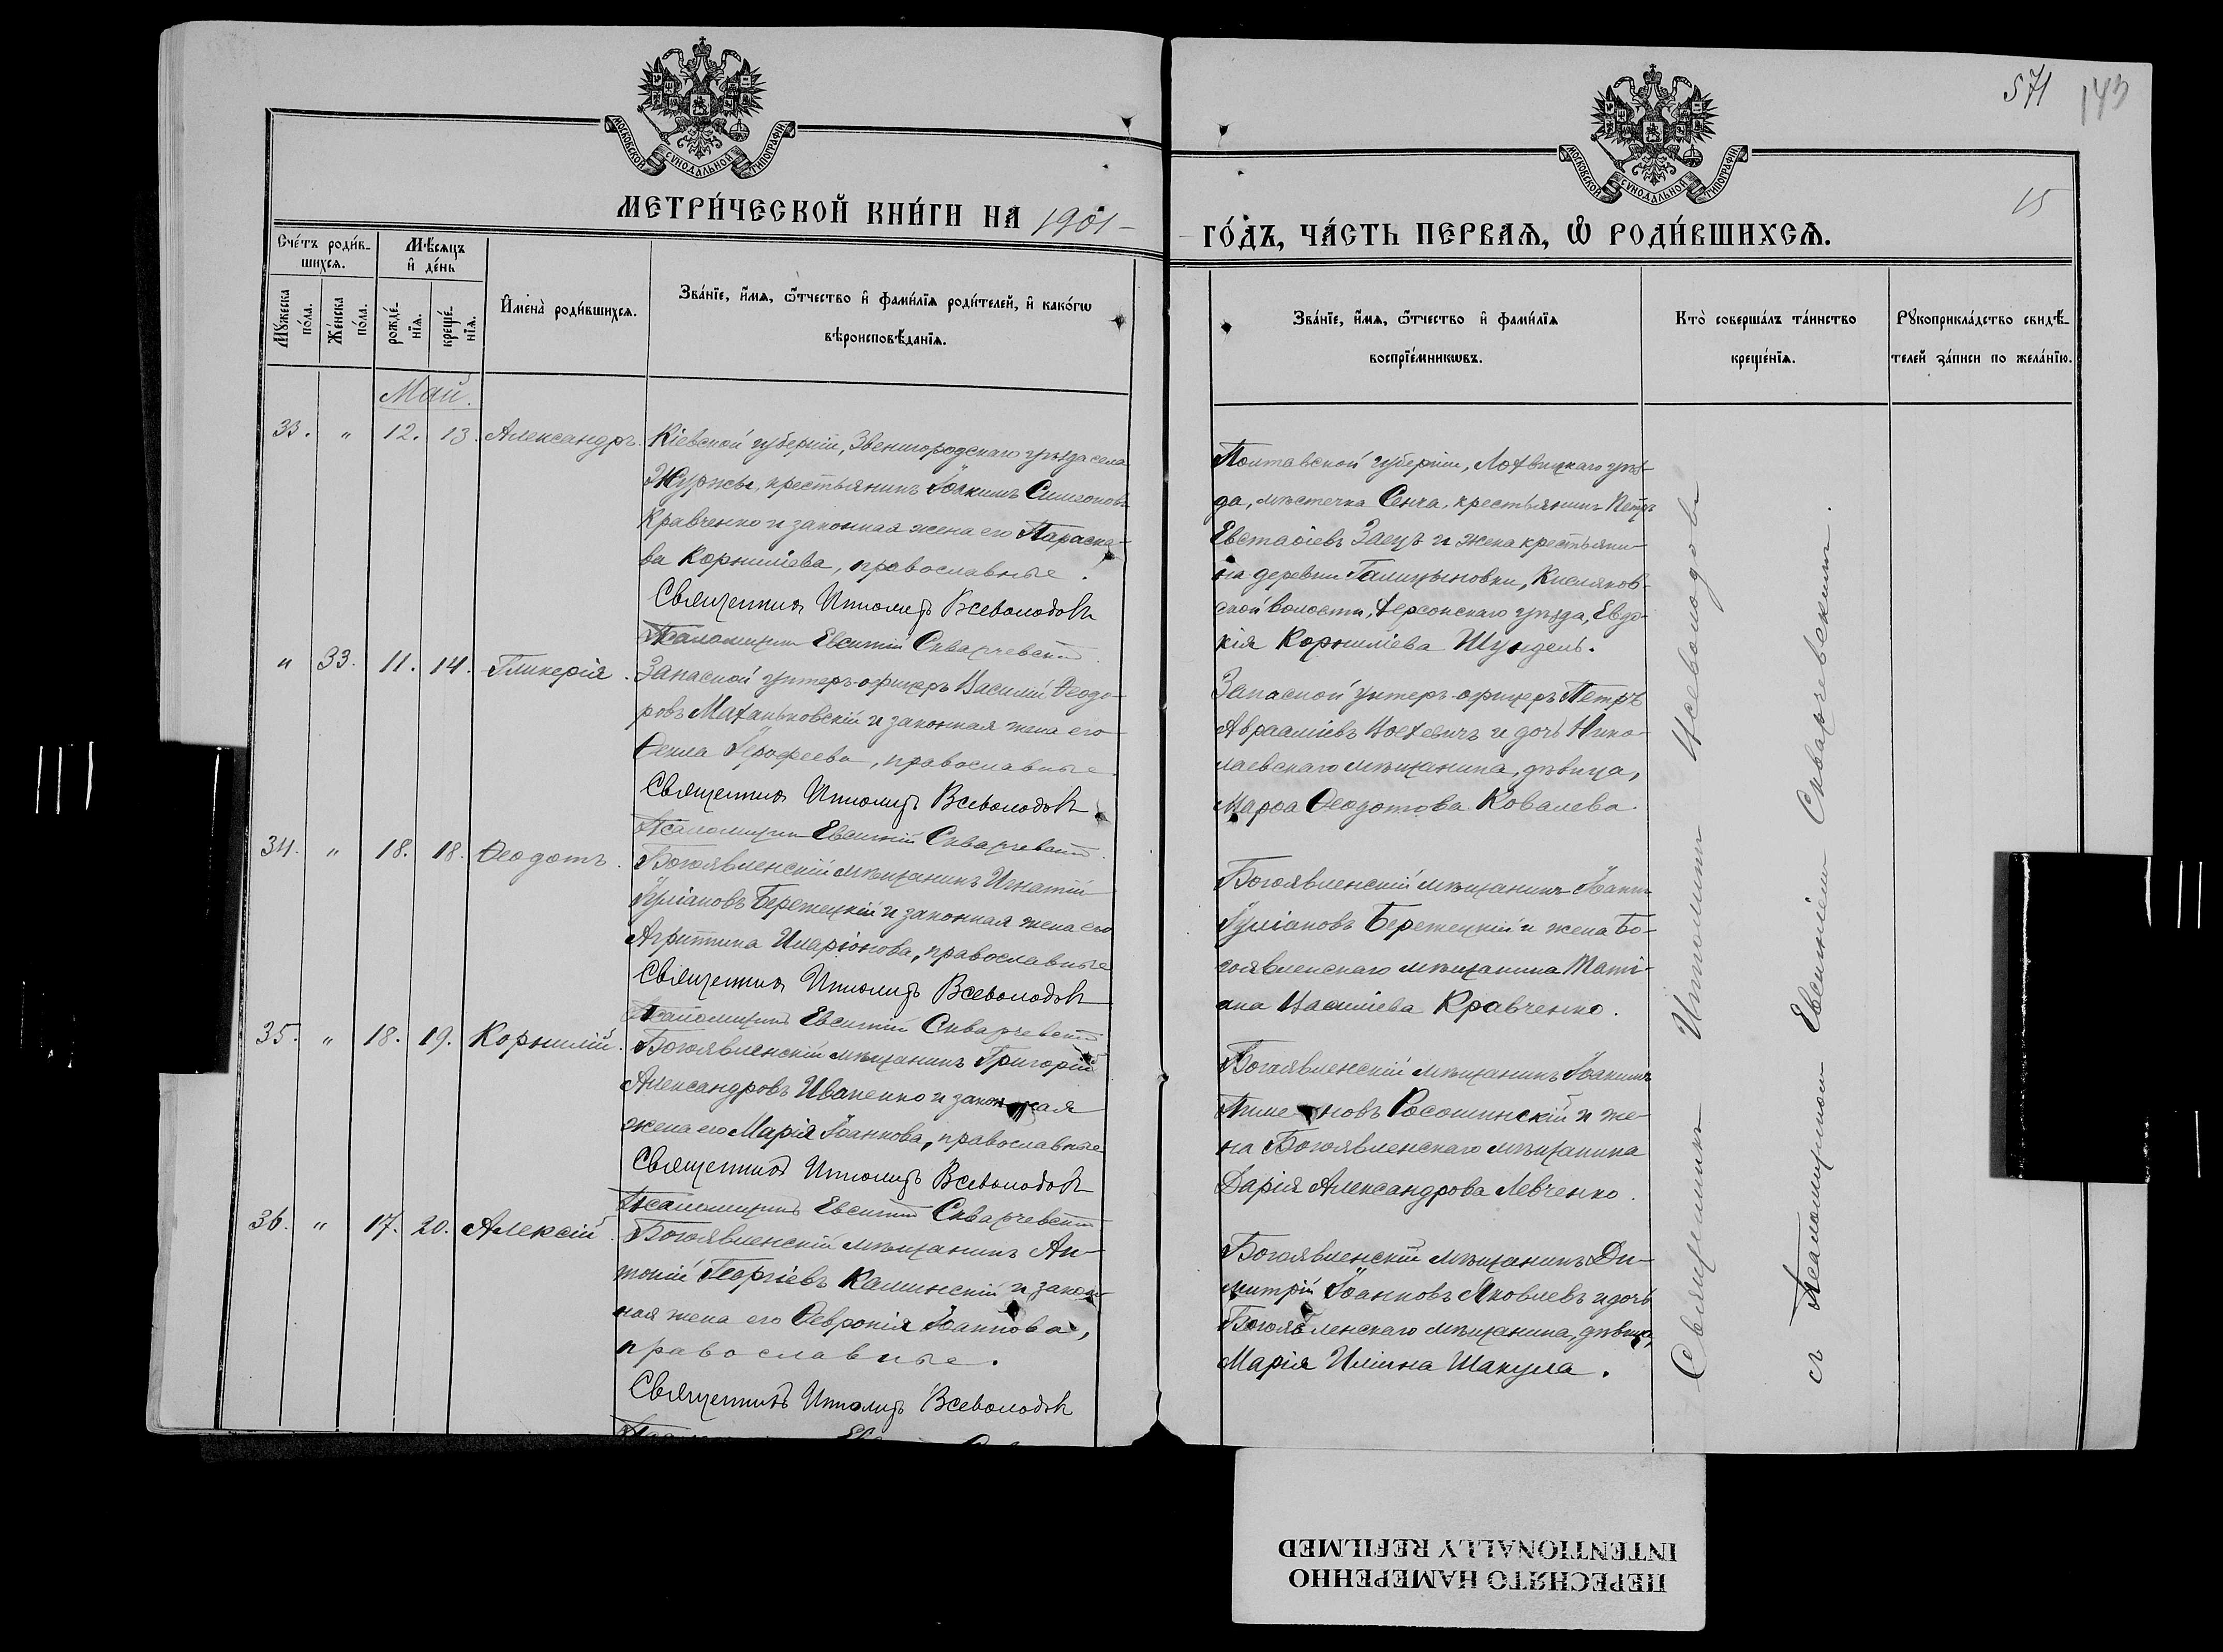 571 143
15
МОСКОВСКОЙ СѴНОДАЛЬНОЙ ТИПОГРАФІИ
МОСКОВСКОЙ СѴНОДАЛЬНОЙ ТИПОГРАФІИ
МЕТРИ́ЧЕСКОЙ КНИ́ГИ НА 1901
ГО́ДЪ, ЧА́СТЬ ПЕРВАѦ, Ѡ РОДИ́ВШИХСѦ.
Сче́тъ роди́в-
шихсѧ.
Мѣ́сѧцъ
и҆ де́нь
Мꙋ́жеска
по́ла.
Же́нска
по́ла.
рожде́-
нїѧ.
креще́-
нїѧ.
И҆мена̀ роди́вшихсѧ.
Зва́нїе, и҆́мѧ, ѻ҆́тчество и҆ фами́лїѧ роди́телей, и҆ како́гѡ
вѣроисповѣ́данїѧ.
Зва́нїе, и҆́мѧ, ѻ҆́тчество и҆ фами́лїѧ
воспрїе́мникѡвъ.
Кто̀ соверша́лъ та́инство
креще́нїѧ.
Рꙋкоприкла́дство свидѣ́-
телей за́писи по жела́нїю.
Май.
33. " 12. 13. Александръ.
Кіевской губерніи, Звенигородскаго уѣзда села
Журжъ, крестьянинъ Іоакимъ Симеоновъ
Кравченко и законная жена его Параске-
ва Корниліева, православные.
Священникъ Ипполитъ Всеволодовъ
Псаломщикъ Евсигній Скварчевскій
Полтавской губерніи, Лохвицкаго уѣз-
да, мѣстечка Сенча, крестьянинъ Петръ
Евстаѳіевъ Заецъ и жена крестьяни-
на деревни Галицыновки, Кисляков-
ской волости, Херсонскаго уѣзда, Евдо-
кія Корниліева Шундель.
" 33. 11. 14. Гликерія.
Запасной унтеръ-офицеръ Василій Ѳеодо-
ровъ Маханьковскій и законная жена его
Ѳекла Іероѳеева, православные.
Священникъ Ипполитъ Всеволодовъ
Псаломщикъ Евсигній Скварчевскій
Запасной унтеръ-офицеръ Петръ
Авраамовъ и дочь Нико-
лаевскаго мѣщанина, дѣвица,
Марѳа Ѳеодотова Ковалева.
34. " 18. 18. Ѳеодотъ.
Богоявленскій мѣщанинъ Игнатій
Іуліановъ Бережецкій и законная жена его
Агриппина Иларіонова, православные
Священникъ Ипполитъ Всеволодовъ
Псаломщикъ Евсигній Скварчевскій
Богоявленскій мѣщанинъ Іоаннъ
Іуліановъ Бережецкій и жена Бо-
гоявленскаго мѣщанина Таті-
ана Василіева Кравченко.
35. " 18. 19. Корнилій.
Богоявленскій мѣщанинъ Григорій
Александровъ Иваненко и законная
жена его Марія Іоаннова, православные
Священникъ Ипполитъ Всеволодовъ
Псаломщикъ Евсигній Скварчевскій
Богоявленскій мѣщанинъ Іоакимъ
Росошинскій и же-
на Богоявленскаго мѣщанина
Дарія Александрова Левченко.
36. " 17. 20. Алексій.
Богоявленскій мѣщанинъ Ан-
тоній Георгіевъ Калинскій и закон-
ная жена его Ѳевронія Іоаннова,
православные.
Священникъ Ипполитъ Всеволодовъ
Богоявленскій мѣщанинъ Ди-
митрій Іоанновъ Яковлевъ и дочь
Богоявленскаго мѣщанина, дѣвица,
Марія Иліина Шакула.
Священникъ Ипполитъ Всеволодовъ
съ Псаломщикомъ Евсигніемъ Скварчевскимъ.
ПЕРЕСНЯТО НАМЕРЕННО
INTENTIONALLY REFILMED